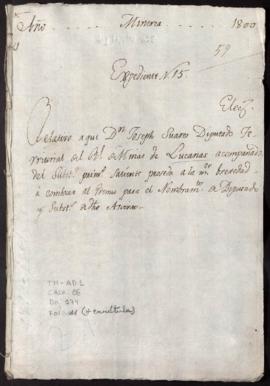 Año Mineria 1800
59
Expediente N. 15.
Elec.
Relativo a que Dn. Joseph Suarez Diputado Te-
rritorial del Rl. de Minas de Lucanas acompañado
del Subst. primo. Saliente pasen a la mor. brevedad
a combocar al Gremio para el Nombramto. de Diputado
y Substo. de dho Asiento.
TM-AD 1
CAJA 06
DO. 174
FOL. 11 (+ carátula)